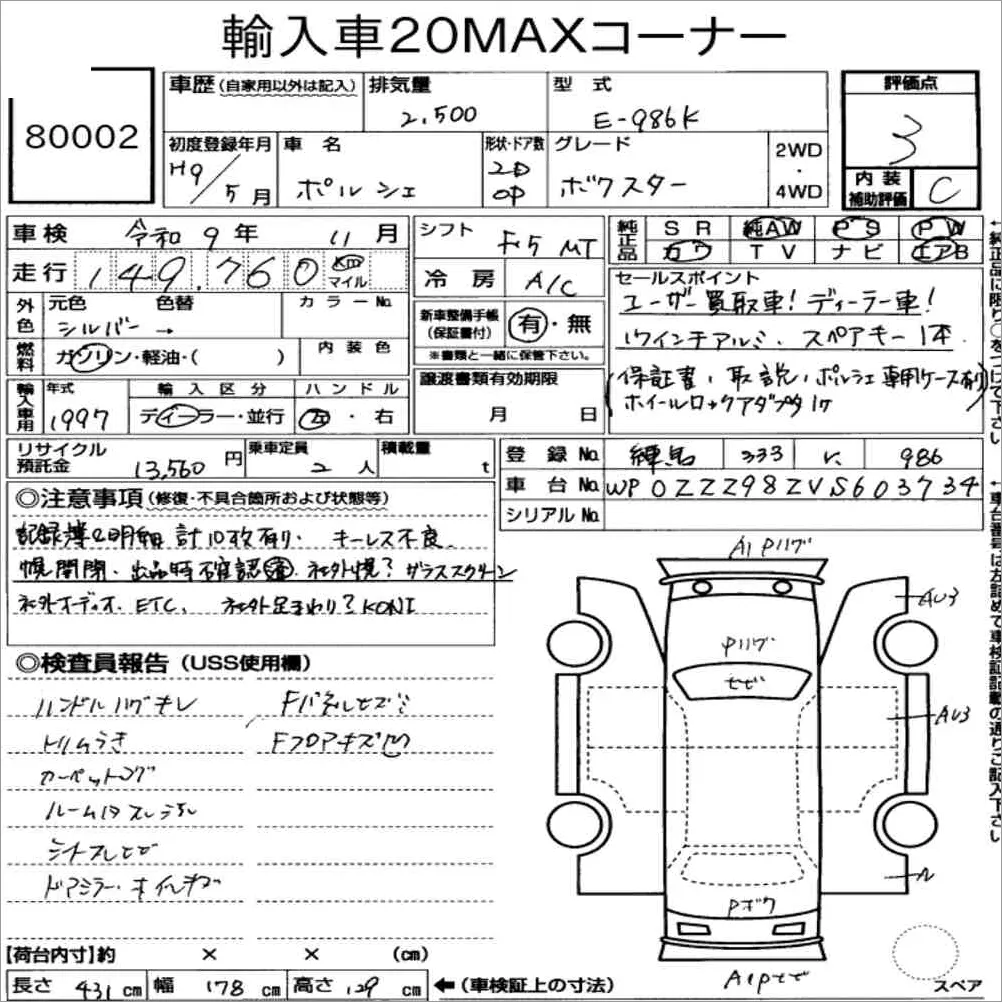 輸入車20MAXコーナー
80002
車歴(自家用以外は記入) 排気量 2,500 型式 E-986K 評価点 3
初度登録年月 H9/5月 車名 ポルシェ 形状・ドア数 2D OP グレード ボクスター 2WD・4WD 内装補助評価 C
車検 令和9年11月 シフト F5 MT 純正品 SR 純AW PS PW
走行 149,760 Km マイル 冷房 A/C カワ TV ナビ エアB
外色 元色 シルバー → 色替 カラーNo. 新車整備手帳(保証書付) 有・無 ※書類と一緒に保管下さい。
燃料 ガソリン・軽油・( ) 内装色 譲渡書類有効期限 月 日
輸入車用 年式 1997 輸入区分 ディーラー・並行 ハンドル 左・右
セールスポイント
ユーザー買取車! ディーラー車!
17インチアルミ、スペアキー1本
(保証書、取説、ポルシェ専用ケース有り
ホイールロックアダプタ1ケ)
リサイクル預託金 13,560円 乗車定員 2人 積載量 t
登録No. 練馬 333 986
車台No. WP0ZZZ98ZVS603734
シリアルNo.
◎注意事項(修復・不具合箇所および状態等)
記録簿&明細 計10枚有り、キーレス不良
幌開閉、出品時確認 社外幌? ガラススクリーン
社外オーディオ、ETC、社外足まわり? KONI
◎検査員報告(USS使用欄)
ハンドルハゲキレ Fパネルセズミ
トリムうき Fフロアキズ凹
カーペットコゲ
ルーム内スレ
シートスレ
ドアミラー・ホイルキズ
A1 Pハゲ
AU3
Pハゲ
AU3
Pボク
【荷台内寸】約 × × (cm)
長さ 431cm 幅 178cm 高さ 129cm ←(車検証上の寸法)
スペア
←純正品に限り○をつけて下さい
←車台番号は左詰めで車検証記載の通りご記入下さい